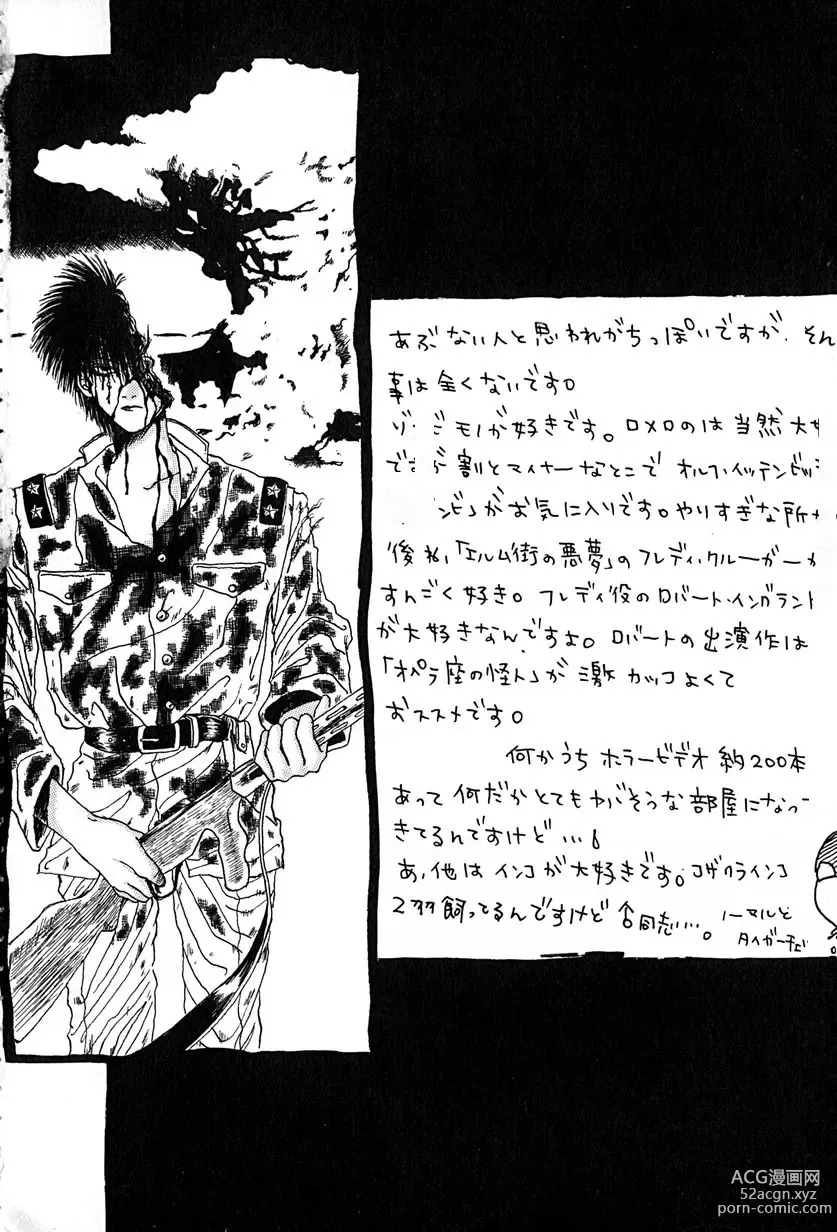 あぶない人と思われがちっぽいですが、そん
事は全くないです。
モノが好きです。ロメロのは当然大
割とマイナーなとこでオルフ・イッテンビッ
ンビ」がお気に入りです。やりすぎな所
後私、「エルム街の悪夢」のフレディ・クルーガーが
すんごく好き。フレディ役のロバート・イングランド
が大好きなんですよ。ロバートの出演作は
「オペラ座の怪人」が激カッコよくて
おススメです。
何かうちホラービデオ約200本
あって何だかとてもヤバそうな部屋になっ
きてるんですけど…。
あ、他はインコが大好きです。コザクラインコ
2羽飼ってるんですけど 同志…。ノーマルと
タイガーチェ
ACG漫画网
52acg.com
porn-comic.com